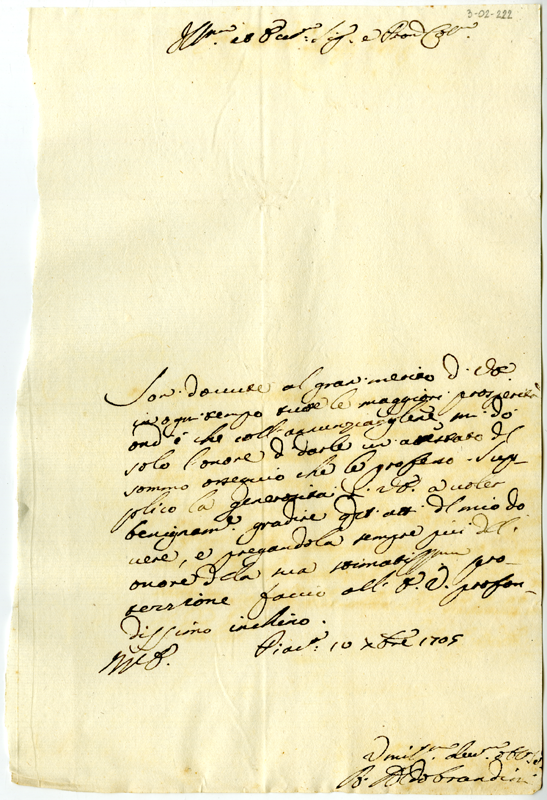 3-02-222
Ill.mo et Ecc.mo Sig. e Pron Col.mo
Son' dovute al gran' merito d. V.E.
in ogni tempo tutte le maggiori prosperità
ond' è che coll' annunziargliene mi dò
solo l'onore d darle un' attestato del
sommo ossequio che le professo. Sup-
plico la generosità d. V.E. a voler
benignam.e gradire qst att. del mio do
vere, e pregandola sempre più del
onore della sua stimatissima pro-
tezzione faccio all' E.V. profon-
dissimo inchino.
Piac.a 10 Xbre 1705
Umil.mo Dev.mo
B. Aldobrandini